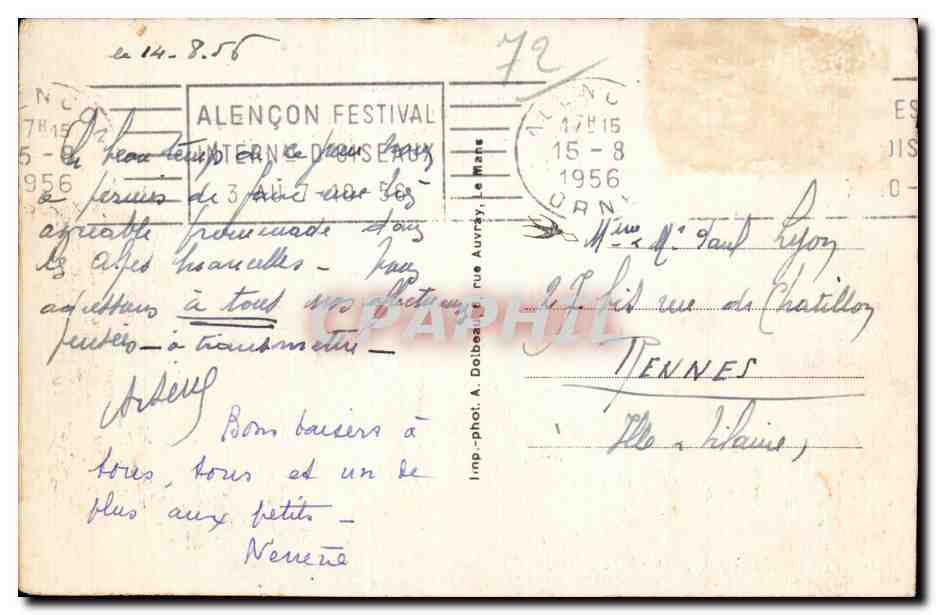 le 14-8.56
72
ALENÇON FESTIVAL
INTERN. D'OISEAUX
3 AU 7-10-56
17H15
15-8
1956
ORNE
17H15
15-8
1956
Le beau temps de ce jour nous
a permis de faire une très
agréable promenade dans
les Alpes Mancelles - Nous
adressons à tous nos affectueuses
pensées - à transmettre -
Bons baisers à
tous, tous et un de
plus aux petits -
Nenene
Imp.-phot. A. Dolbeau, rue Auvray, Le Mans
Mme & Mr Paul
27 bis rue de Chatillon
RENNES
Ille & Vilaine,
CPAPHIL